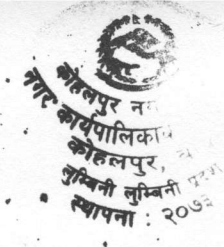 कोहलपुर नग
नगर कार्यपालिकाको
कोहलपुर,
लुम्बिनी लुम्बिनी प्रदेश
स्थापना : २०७३